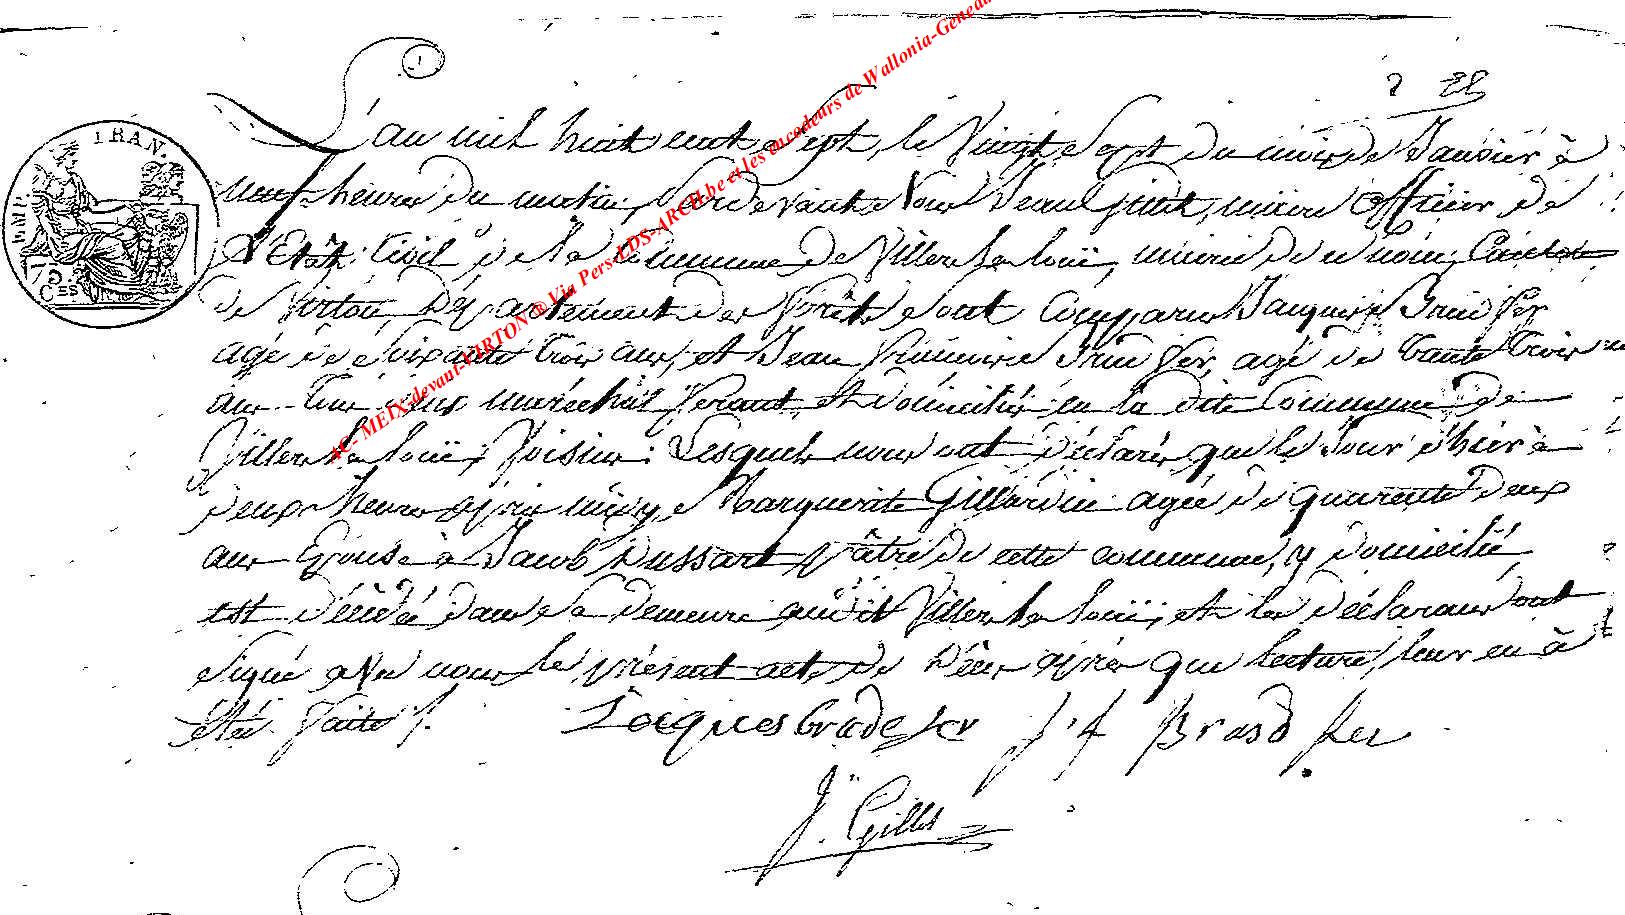 EMP. FRAN.
75
C.es
L'an mil huit cent e Sept, le Vingt e Sept du mois de Janvier à
neuf heures du matin, Pardevant e Nous Jean Gilles, maire officier de
l'Etat Civil de la Commune de Villers la loüe, mairie de ce nom, Canton
de Virton, Département des forêts e sont Comparus Jacques
agé de e soixante trois ans, et Jean agé de trente trois
ans tous deux maréchal ferant, et domiciliés en la dite Commune de
Villers la loüe, Voisins; Lesquels nous ont déclarés que le Jour d'hier à
deux heures après midy, e Marguerite Gillardin agée de quarente deux
ans Epouse à Jacob Dussart pâtre de cette commune, y domicilié
est décédé dans e sa demeure audit Villers la loüe, et les déclarans ont
e signé avec nous le présent acte de Décès après que lecture leur en à
été faite /.
Jacques Bradefer J f Brasd fer
J. Gilles
AC- MEIX-devant-VIRTON ® Via Pers-EDS-ARCH.be et les encodeurs de Wallonia-Genea